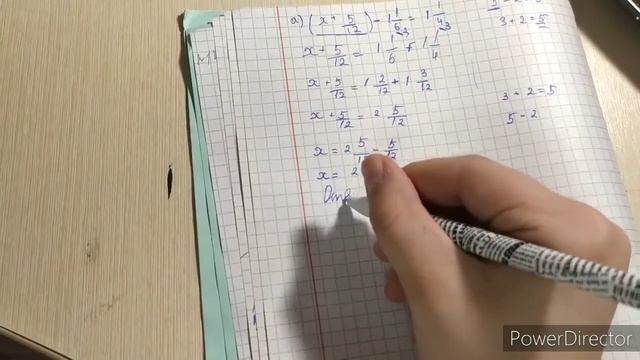 а) (x + 5/12) - 1 1/6 = 1 1/4
x + 5/12 = 1 1/6 + 1 1/4
x + 5/12 = 1 2/12 + 1 3/12
x + 5/12 = 2 5/12
x = 2 5/12 - 5/12
x = 2
3 + 2 = 5
3 + 2 = 5
5 - 2
PowerDirector